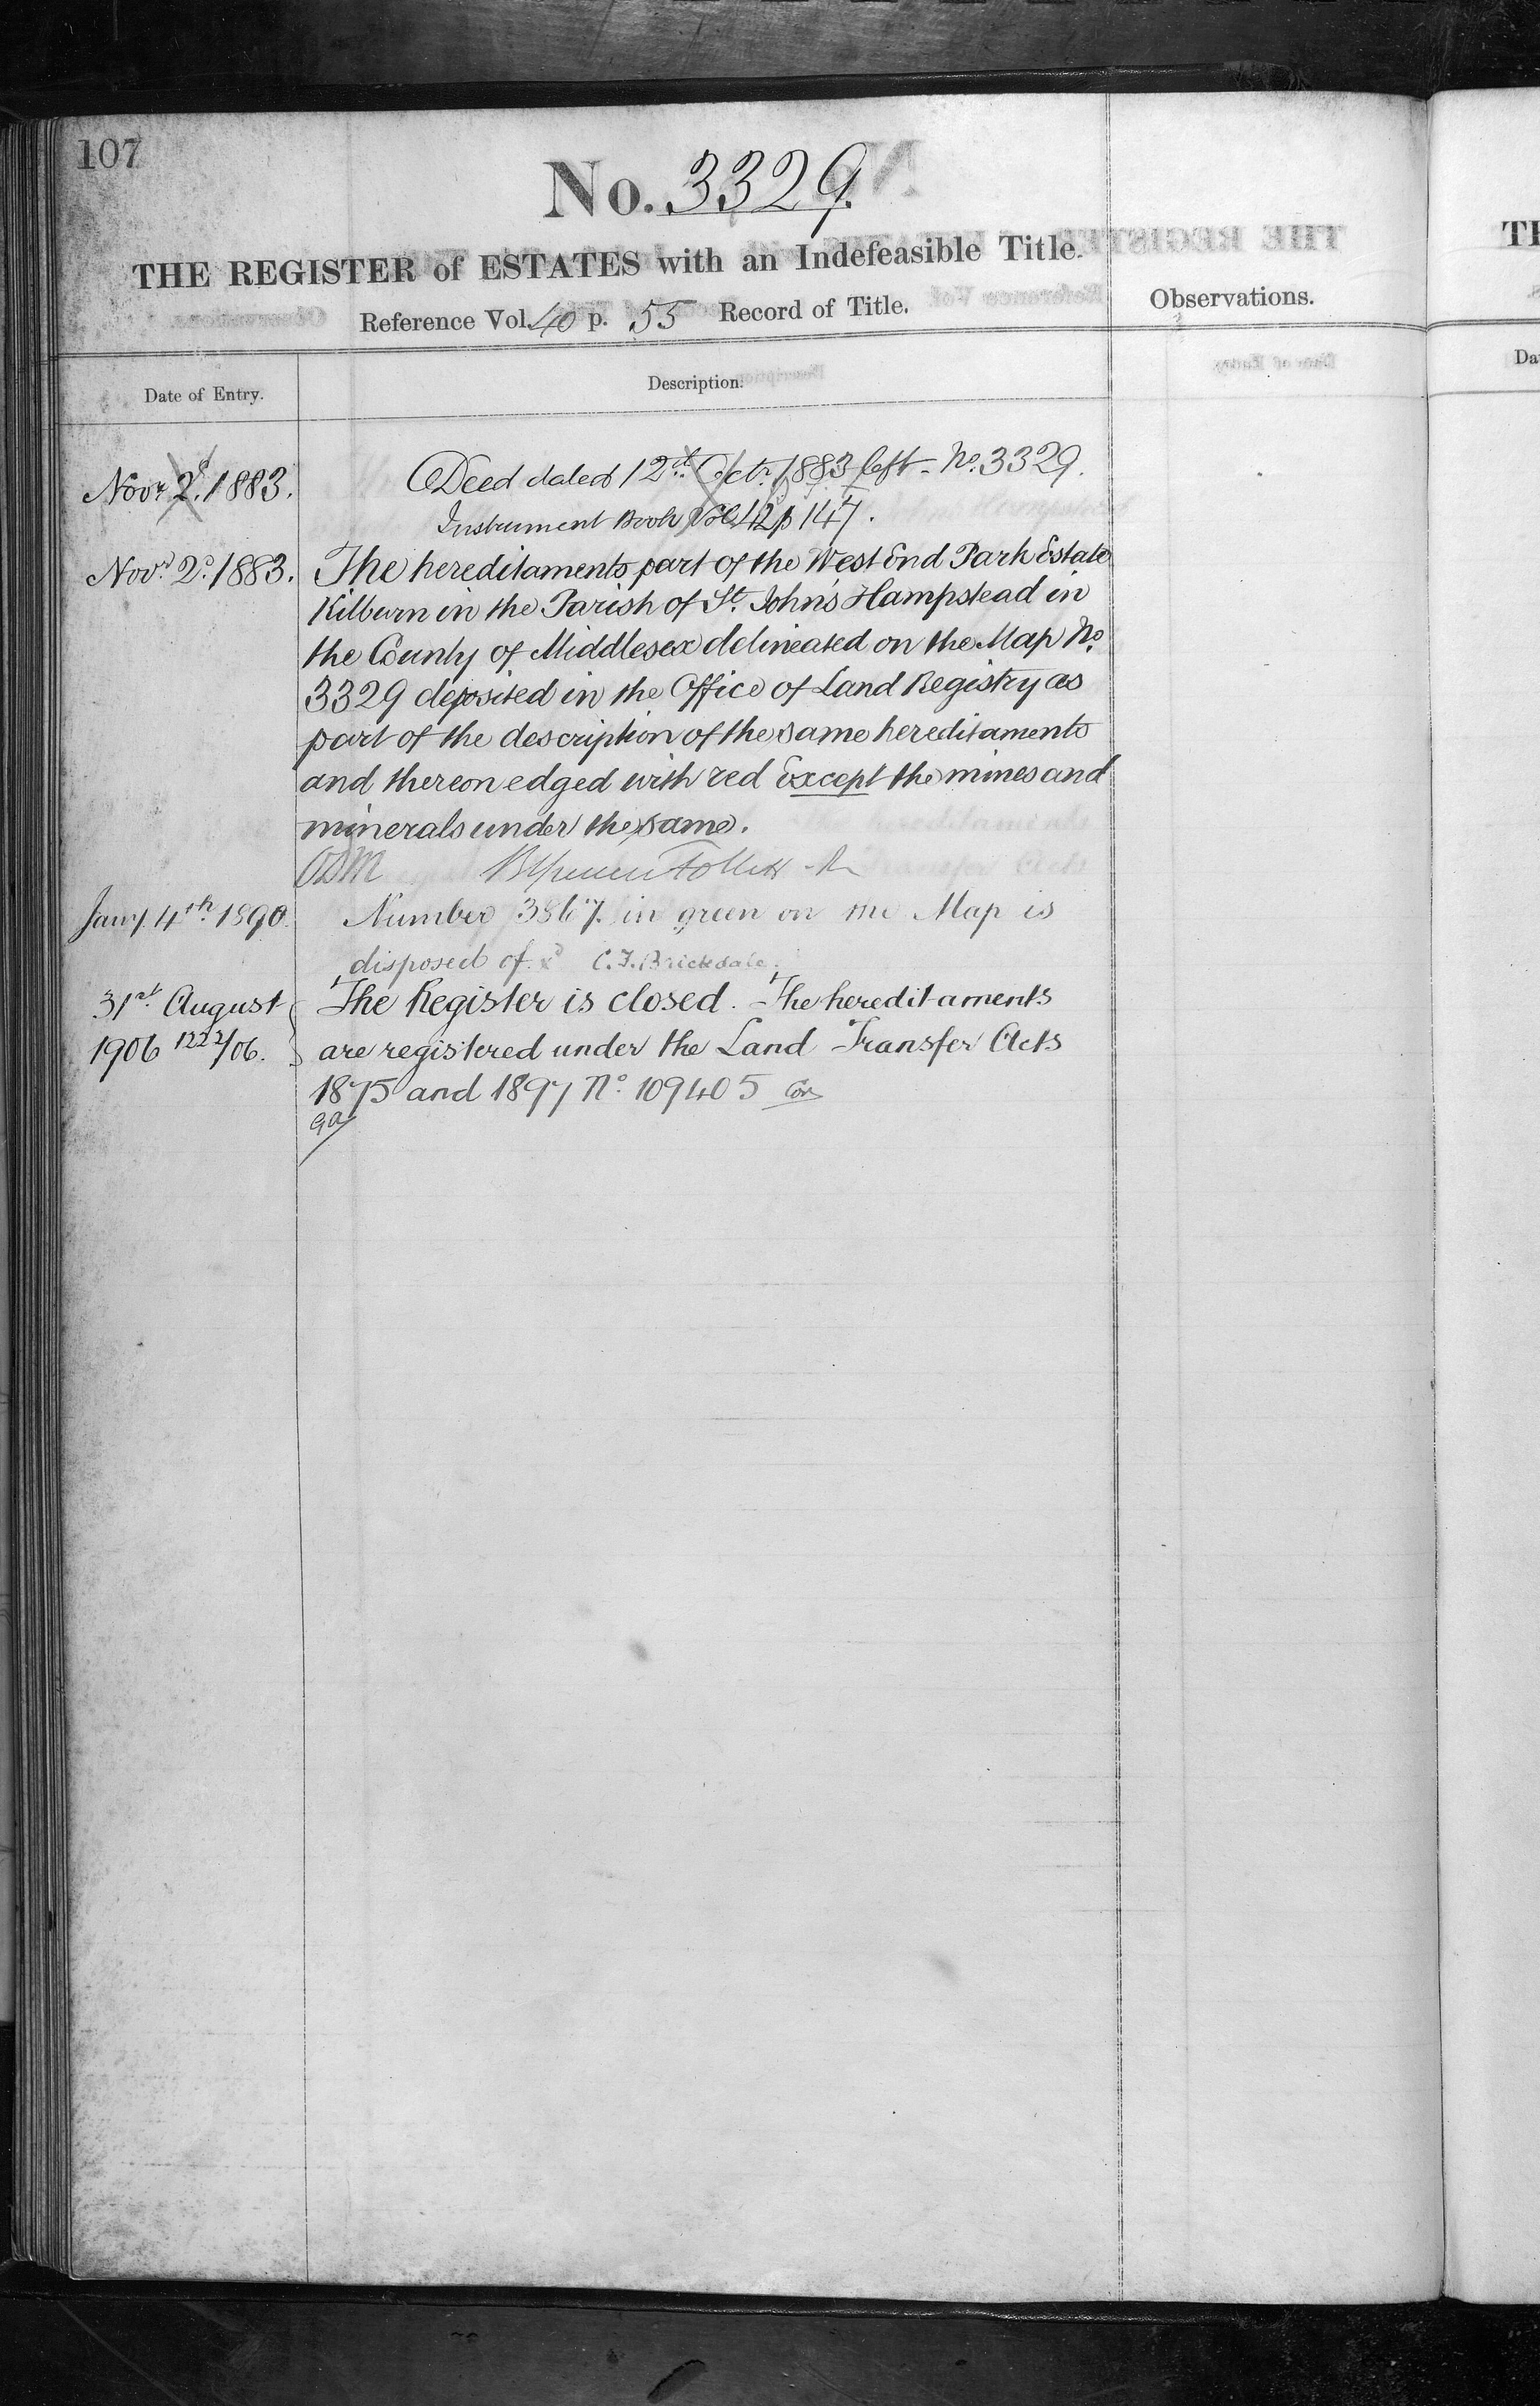 107
No. 3329.
THE REGISTER of ESTATES with an Indefeasible Title.
Reference Vol. 40 p. 55 Record of Title.
Observations.
Date of Entry.
Description.
Novr. 2d. 1883.
Deed dated 12th. Octr. 1883 left - No. 3329.
Instrument Book Vol 42 p 147.
Novr. 2d. 1883.
The hereditaments part of the West End Park Estate
Kilburn in the Parish of St. John's Hampstead in
the County of Middlesex delineated on the Map No.
3329 deposited in the Office of Land Registry as
part of the description of the same hereditaments
and thereon edged with red Except the mines and
minerals under the same.
Jany. 4th. 1890.
Number 3867. in green on the Map is
disposed of. C.F. Brickdale.
31st. August
1906 1222/06.
The Register is closed. The hereditaments
are registered under the Land Transfer Acts
1875 and 1897 No. 109405